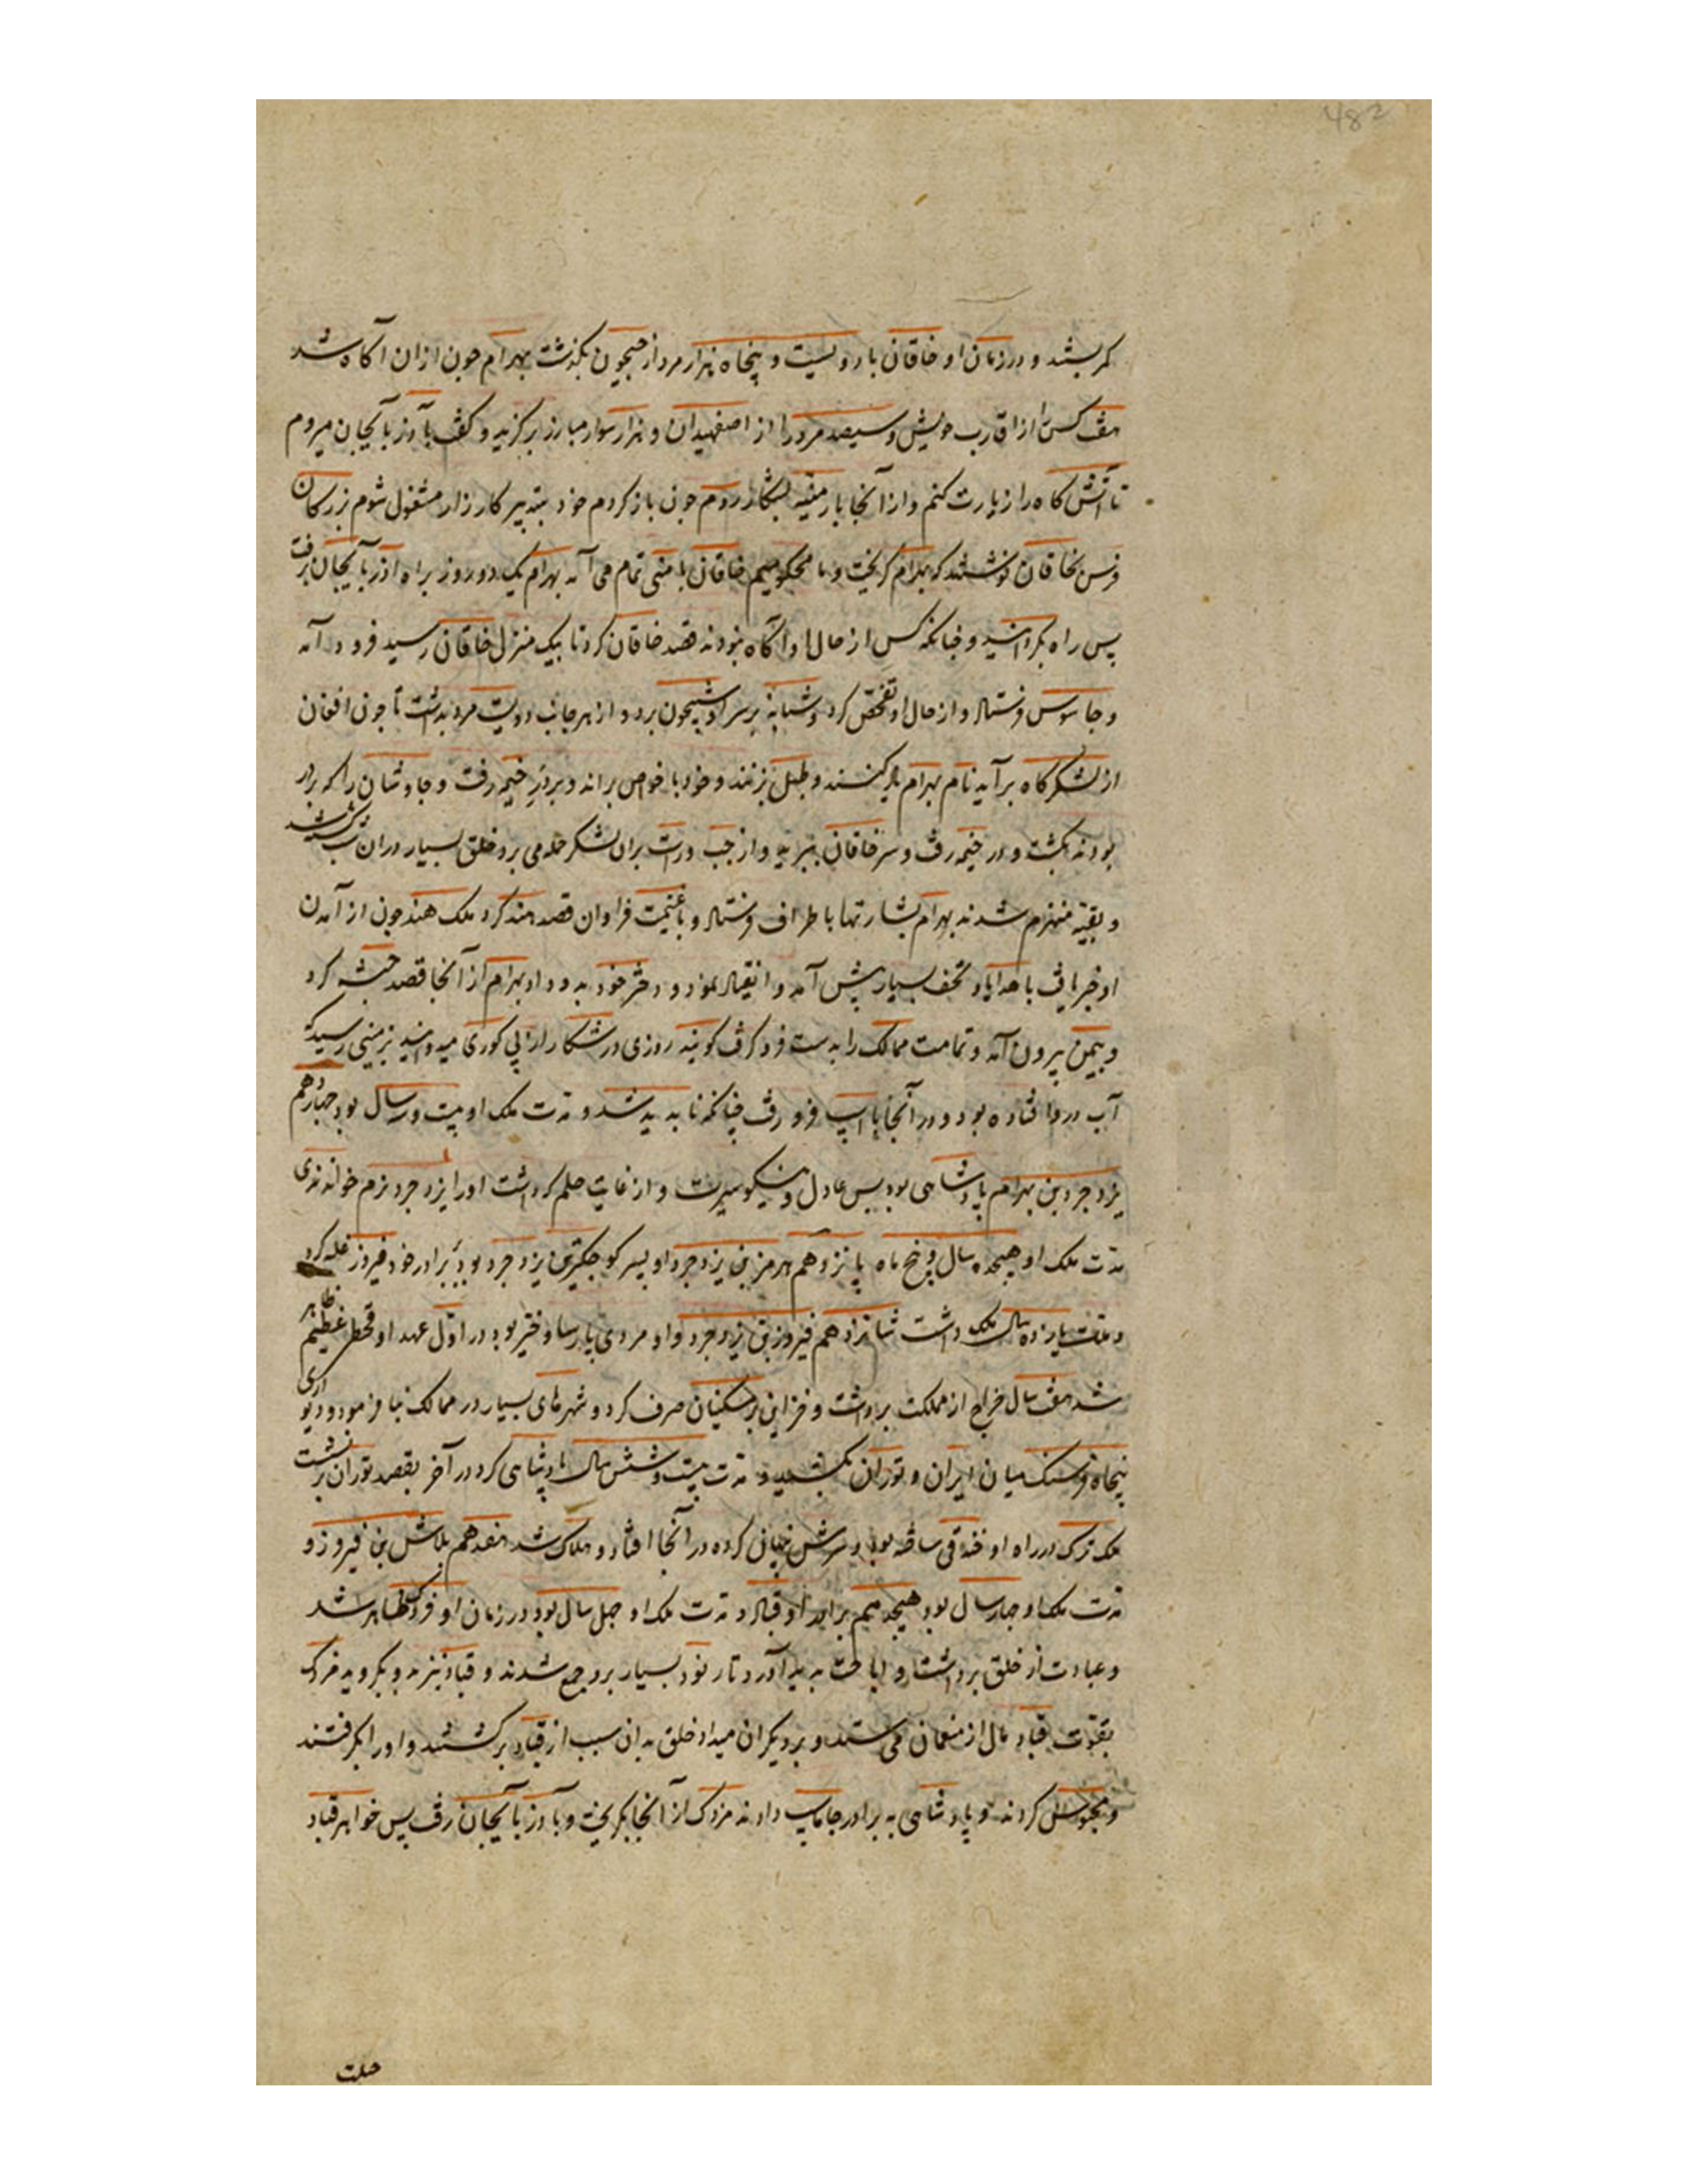 482
کمر بستند و در زمان او خاقان با دویست و پنجاه هزار مرد از جیحون بگذشت بهرام چون ازان آگاه شد
هفت کس از اقارب خویش و سیصد مرد را از اصفهبدان و هزار سوار مبارز برگزید و گفت بآذربایجان میروم
تا آتش گاه را زیارت کنم و از آنجا بارمنیه بشکار روم چون باز کردم خود بتدبیر کارزار مشغول شوم بزرگان
فرس بخاقان نوشتند که بهرام گریخت و ما محکومیم خاقان بامنی تمام می آمد بهرام یک دو روز براه آذربایجان برفت
پس راه بگردانید و چنانکه کس از حال او آگاه نبود قصد خاقان کرد تا بیک منزل خاقان رسید فرود آمد
و جاسوس فرستاد و از حال او تفحص کرد و شبانه بر سر او شبیخون برد و از هر جانب دویست مرد بداشت تا چون افغان
از لشکرگاه برآید نام بهرام یاد کنند و طبل بزنند و خود با خواص براند و بر در خیمه رفت و جاوشان را که بر در
بودند بکشت و در خیمه رفت و سر خاقان ببرید و از چپ و راست بران لشکر حمله می برد خلق بسیار دران شب کشته شد
و بقیه منهزم شدند بهرام بشارتها باطراف فرستاد و با غنیمت فراوان قصد هند کرد ملک هند چون از آمدن
او خبر یافت با هدایا و تحف بسیار پیش آمد و انقیاد نمود و دختر خود بدو داد بهرام از آنجا قصد حبشه کرد
و بیمن بیرون آمد و تمامت ممالک را بدست فرو گرفت گویند روزی در شکار از پی کوری میدوانید بزمینی رسید که
آب درو افتاده بود و در آنجا با اسپ فرو رفت چنانکه ناپدید شد و مدت ملک او بیست و سه سال بود چهاردهم
یزدجرد بن بهرام پادشاهی بود بس عادل و نیکو سیرت و از غایت حلم که داشت او را یزدجرد نرم خواندندی
مدت ملک او هیجده سال و پنج ماه پانزدهم هرمز بن یزدجرد او پسر کوچکترین یزدجرد بود بر برادر خود فیروز غلبه کرد
و مدت یازده سال ملک داشت شانزدهم فیروز بن یزدجرد و او مردی پارسا و خیر بود در اول عهد او قحطی عظیم ظاهر
شد هفت سال خراج از مملکت برداشت و خزاین بر مسکینان صرف کرد و شهرهای بسیار در ممالک بنا فرمود و دیواری
پنجاه فرسنگ میان ایران و توران بکشید و مدت بیست و شش سال پادشاهی کرد در آخر بقصد توران برنشست
ملک ترک در راه او خندقی ساخته بود و سرش پنهان کرده در آنجا افتاد و هلاک شد هفدهم بلاش بن فیروز و
مدت ملک او چهار سال بود هیجدهم برادر او قباد و مدت ملک او چهل سال بود در زمان او مزدک ظاهر شد
و عبادت از خلق برداشت و اباحت پدید آورد تا رنود بسیار برو جمع شدند و قباد نیز بدو بگروید مزدک
بقوت قباد مال از منعمان می ستد و بدیگران میداد خلق بدان سبب از قباد برگشتند و او را بگرفتند
و محبوس کردند و پادشاهی به برادر جاماسپ دادند مزدک از آنجا بگریخت و بآذربایجان رفت پس خواهر قباد